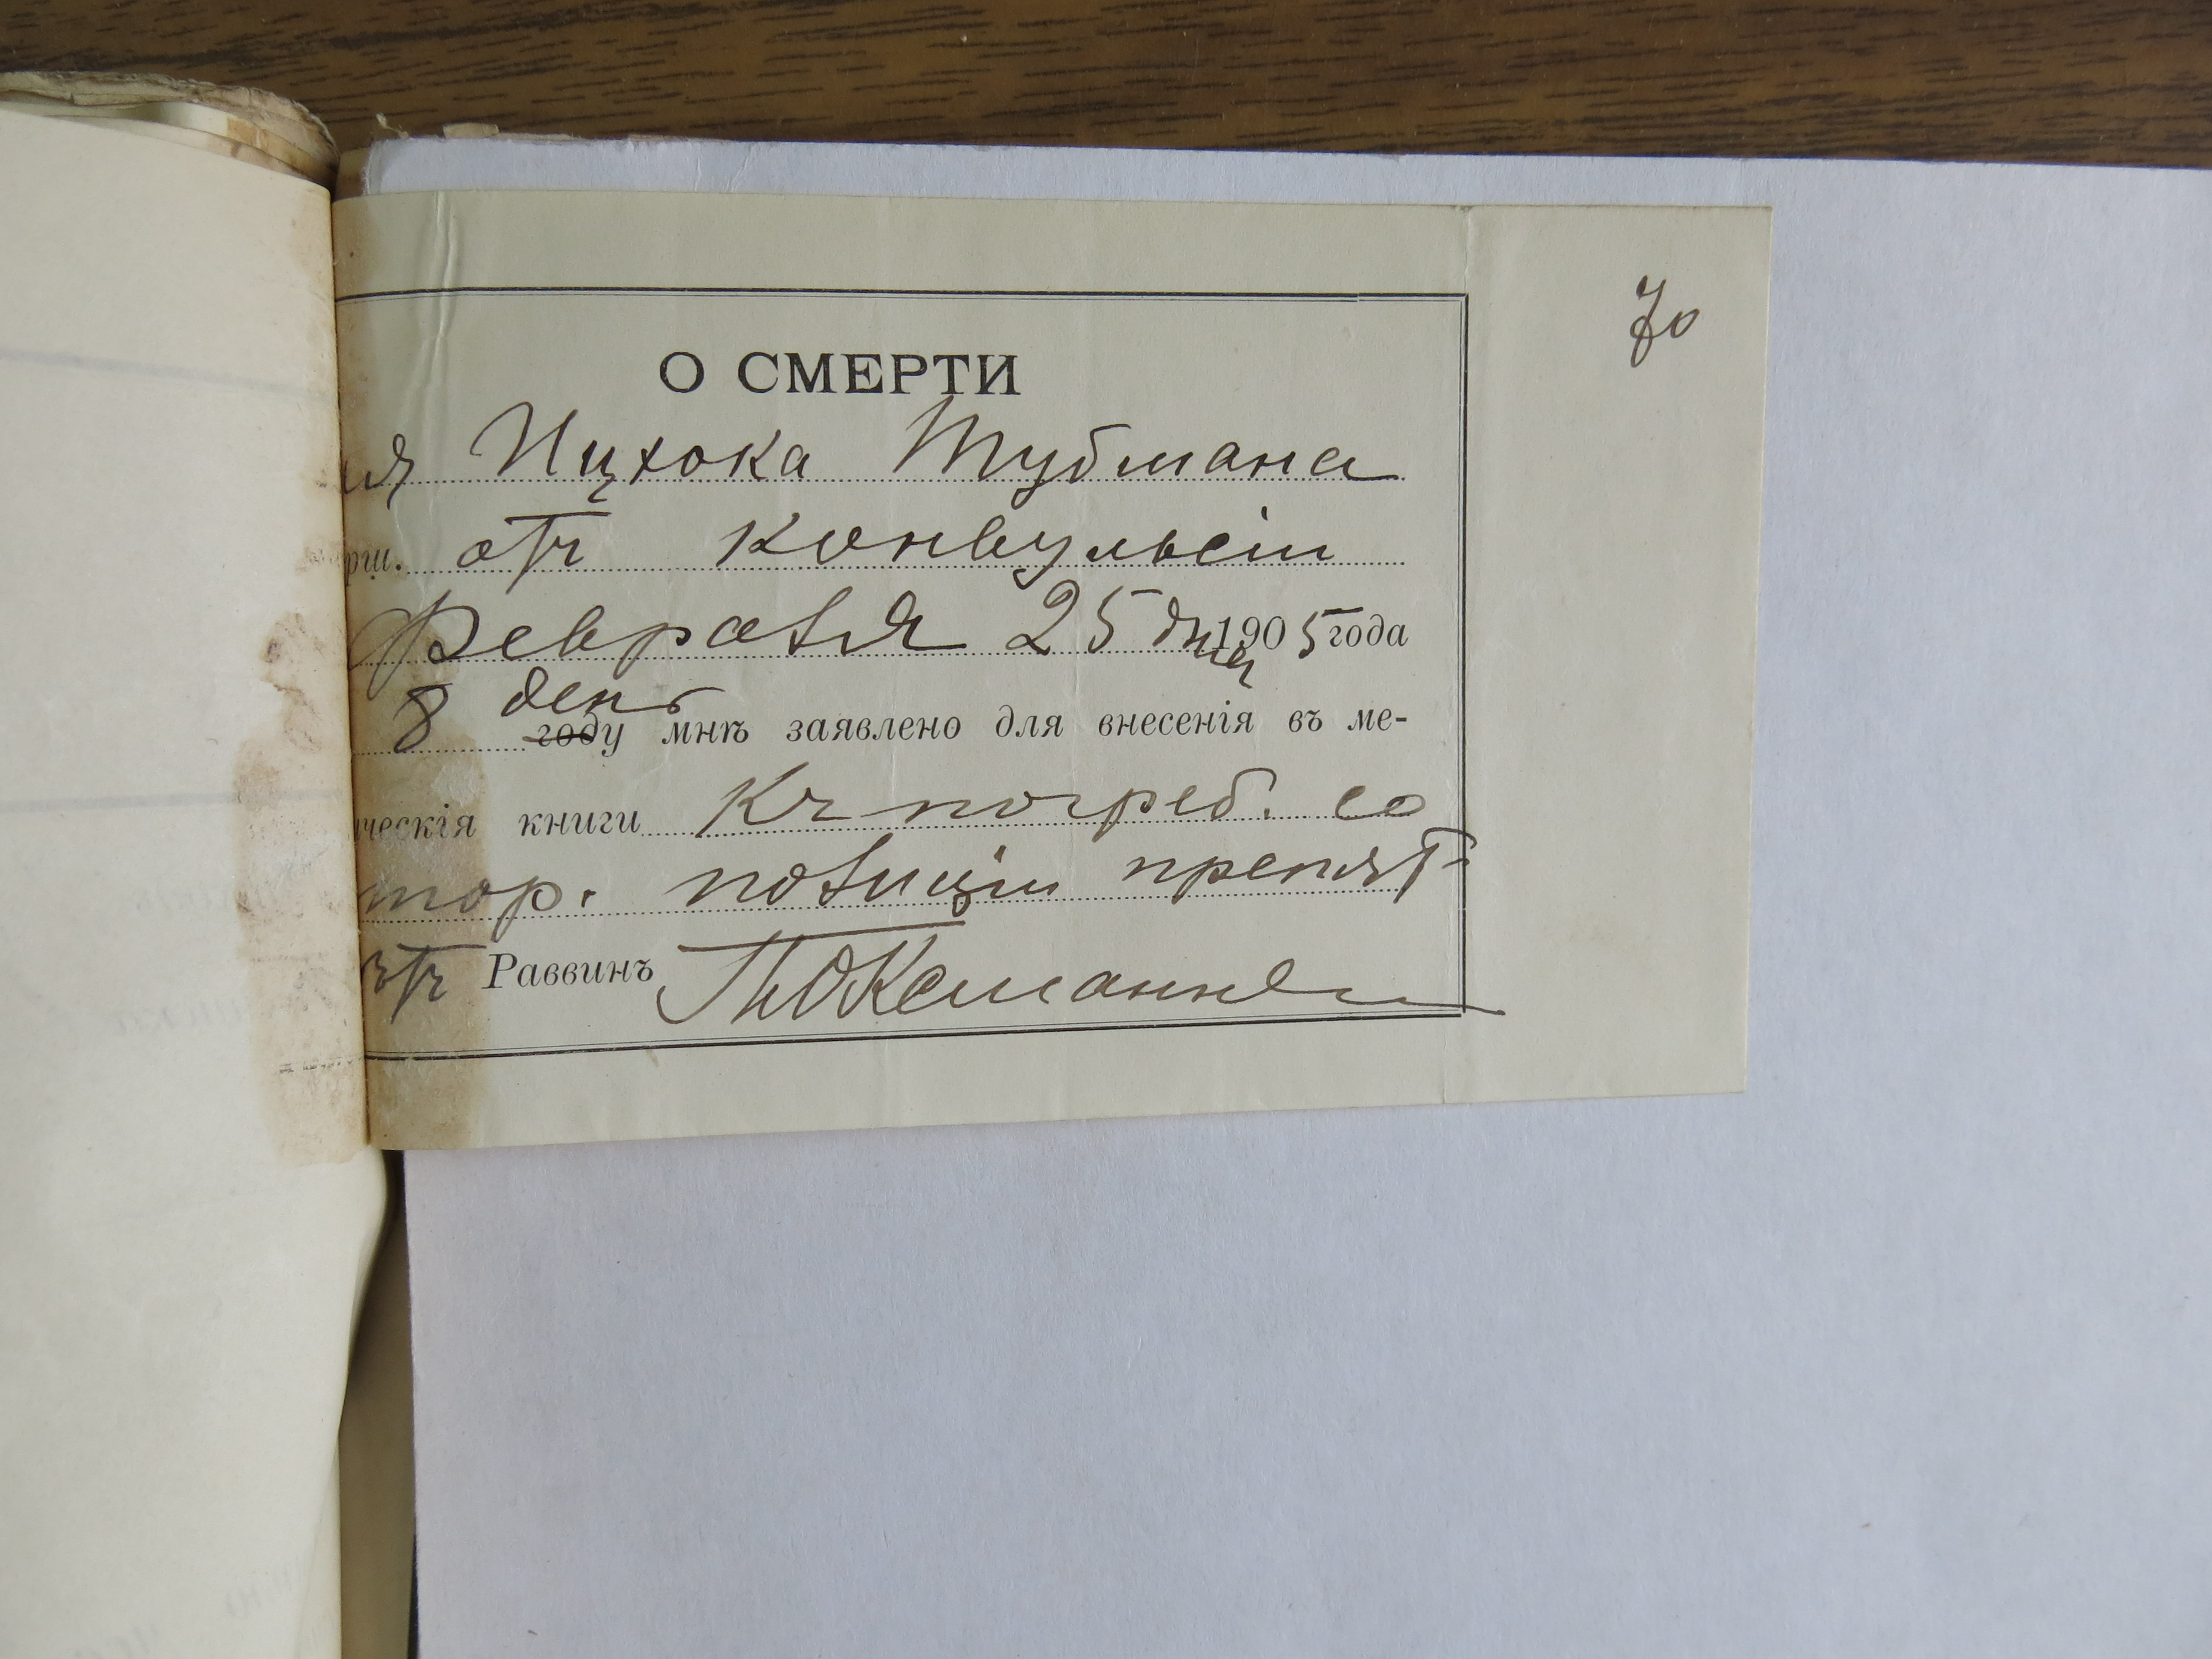 70
О СМЕРТИ
ия Ицхока Тубмана
рш. отъ конвульсіи
Февраля 25 дней 1905 года
8 день году мнѣ заявлено для внесенія въ ме-
ческія книги Къ погреб. со
тор. полиціи препят-
Раввинъ